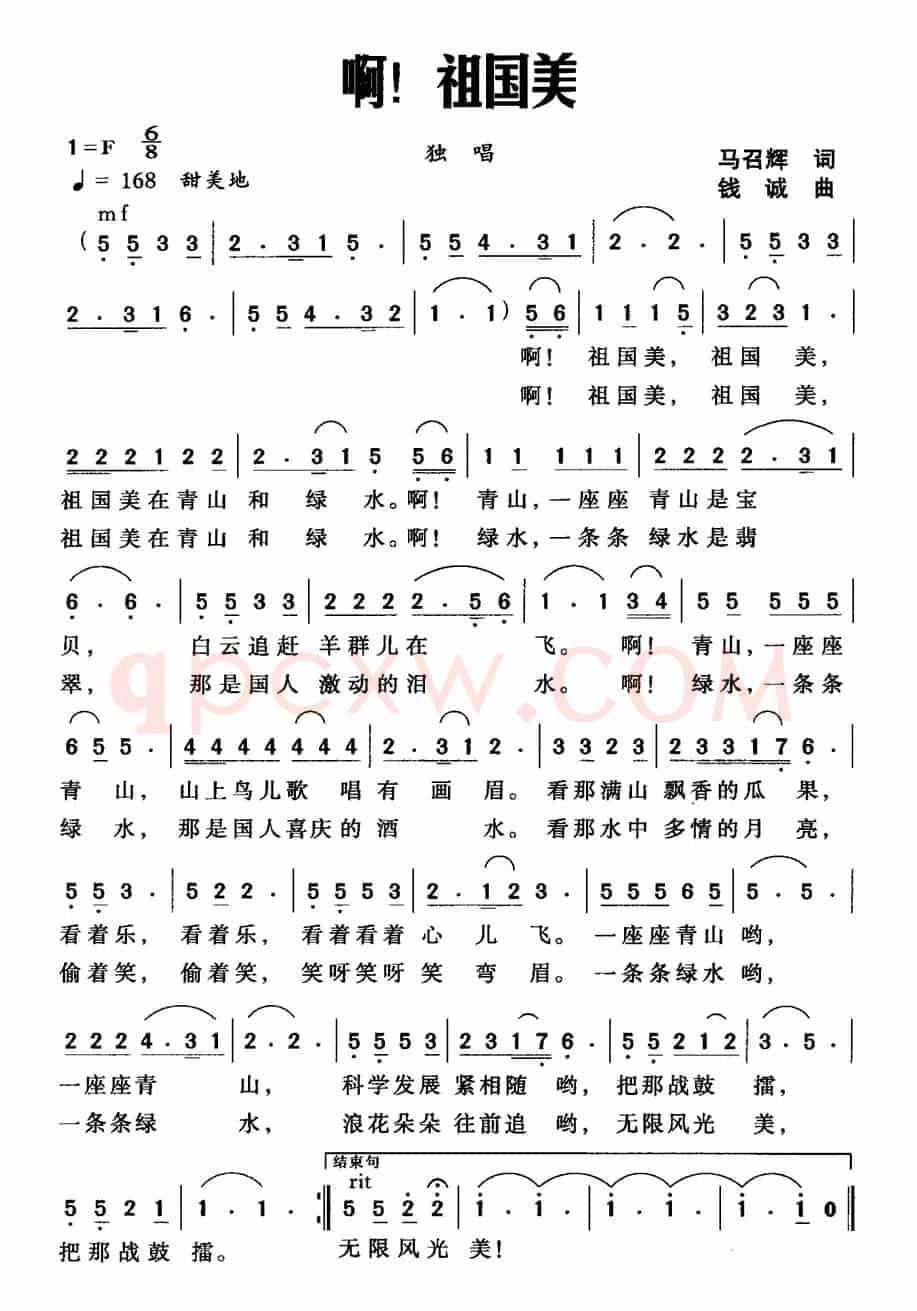 啊！祖国美
1=F 6/8 独 唱 马召辉 词
♩= 168 甜美地 钱 诚 曲
mf
( 5 5 3 3 | 2 · 3 1 5 · | 5 5 4 · 3 1 | 2 · 2 · | 5 5 3 3
2 · 3 1 6 · | 5 5 4 · 3 2 | 1 · 1 ) 5 6 | 1 1 1 5 | 3 2 3 1 · |
啊！祖国美，祖国 美，
啊！祖国美，祖国 美，
2 2 2 1 2 2 | 2 · 3 1 5 5 6 | 1 1 1 1 1 | 2 2 2 2 · 3 1 |
祖国美在青山 和 绿 水。啊！ 青山，一座座 青山是宝
祖国美在青山 和 绿 水。啊！ 绿水，一条条 绿水是翡
6 · 6 · | 5 5 3 3 | 2 2 2 2 · 5 6 | 1 · 1 3 4 | 5 5 5 5 5 |
贝， 白云追赶 羊群儿在 飞。 啊！ 青山，一座座
翠， 那是国人 激动的泪 水。 啊！ 绿水，一条条
qpcxw.COM
6 5 5 · | 4 4 4 4 4 4 4 | 2 · 3 1 2 · | 3 3 2 3 | 2 3 3 1 7 6 · |
青 山， 山上鸟儿歌 唱有 画 眉。看那满山 飘香的瓜 果，
绿 水， 那是国人喜庆的 酒 水。看那水中 多情的月 亮，
5 5 3 · | 5 2 2 · | 5 5 5 3 | 2 · 1 2 3 · | 5 5 5 6 5 | 5 · 5 · |
看着乐， 看着乐， 看着看着 心 儿 飞。一座座青山 哟，
偷着笑， 偷着笑， 笑呀笑呀 笑 弯 眉。一条条绿水 哟，
2 2 2 4 · 3 1 | 2 · 2 · | 5 5 5 3 | 2 3 1 7 6 · | 5 5 2 1 2 | 3 · 5 · |
一座座青 山， 科学发展 紧相随 哟，把那战鼓 擂，
一条条绿 水， 浪花朵朵 往前追 哟，无限风光 美，
结束句
rit
5 5 2 1 | 1 · 1 · :‖ 5 5 2 2 | 1 · 1 · | 1 · 1 · | 1 · 1 0 ‖
把那战鼓 擂。 无限风光 美！